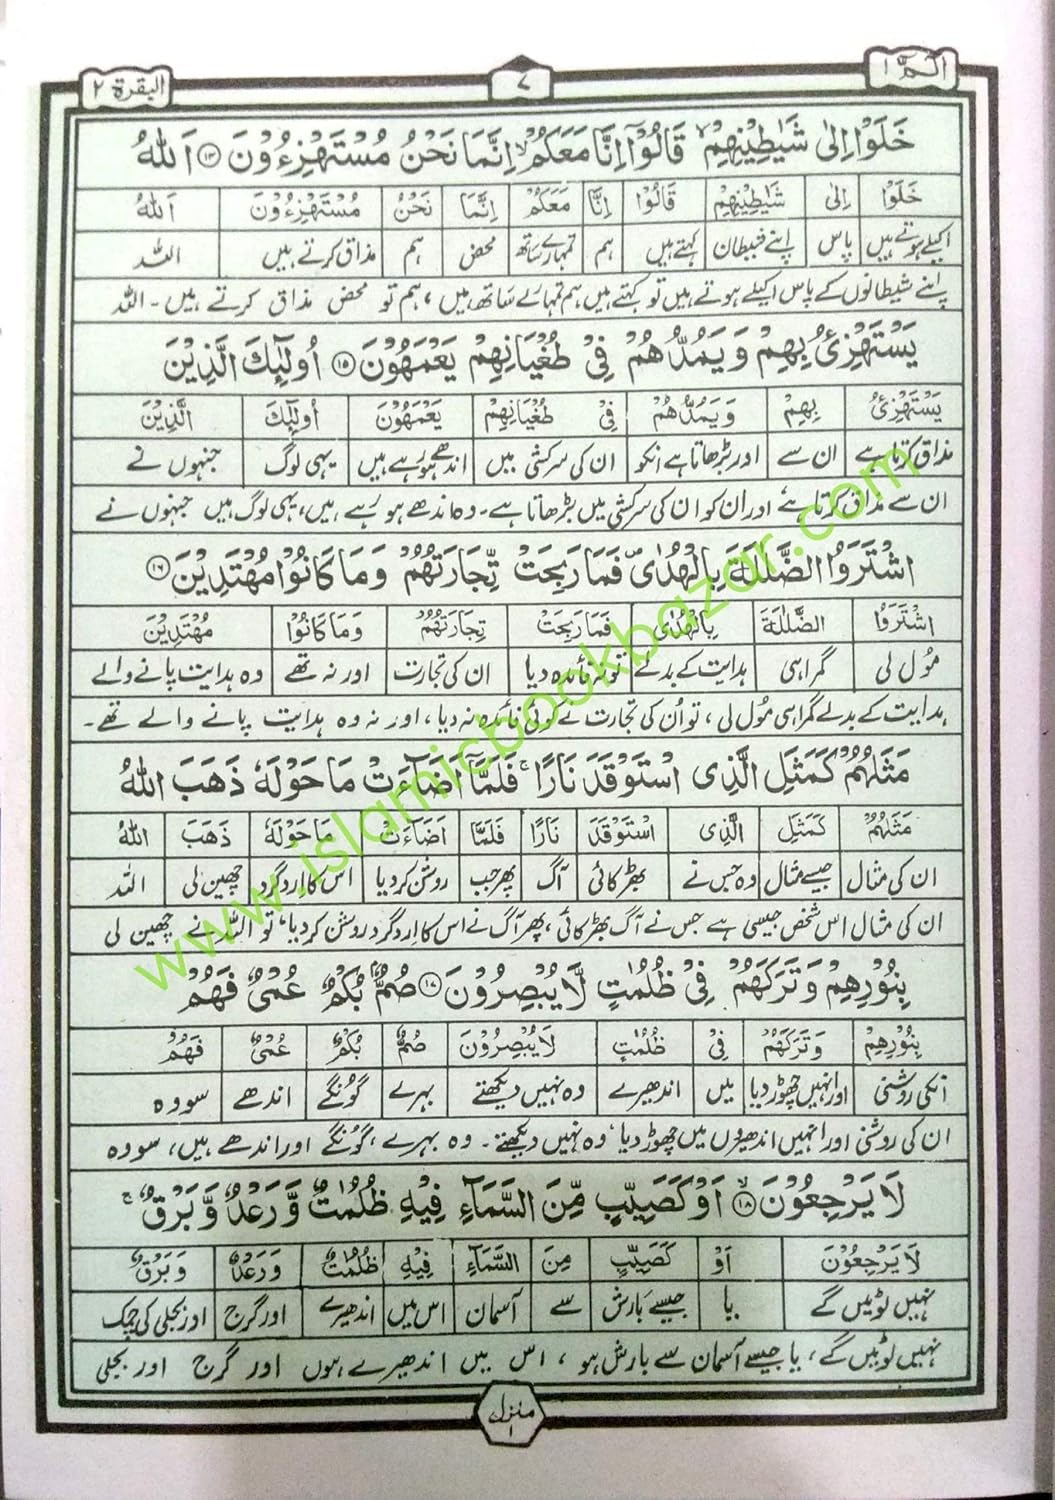 الٓمّٓ ١
٧
البقرة ٢
خَلَوْا اِلٰى شَيٰطِيْنِهِمْ ۙ قَالُوْٓا اِنَّا مَعَكُمْ ۙ اِنَّمَا نَحْنُ مُسْتَهْزِءُوْنَ ⑭ اَللّٰهُ
خَلَوْا اِلٰى شَيٰطِيْنِهِمْ قَالُوْٓا اِنَّا مَعَكُمْ اِنَّمَا نَحْنُ مُسْتَهْزِءُوْنَ اَللّٰهُ
اکیلے ہوتے ہیں پاس اپنے شیطان کہتے ہیں ہم تمہارے ساتھ محض ہم مذاق کرتے ہیں اللہ
اپنے شیطانوں کے پاس اکیلے ہوتے ہیں تو کہتے ہیں ہم تمہارے ساتھ ہیں ، ہم تو محض مذاق کرتے ہیں ۔ اللہ
يَسْتَهْزِئُ بِهِمْ وَيَمُدُّهُمْ فِيْ طُغْيَانِهِمْ يَعْمَهُوْنَ ⑮ اُولٰٓئِكَ الَّذِيْنَ
يَسْتَهْزِئُ بِهِمْ وَيَمُدُّهُمْ فِيْ طُغْيَانِهِمْ يَعْمَهُوْنَ اُولٰٓئِكَ الَّذِيْنَ
مذاق کرتا ہے ان سے اور بڑھاتا ہے انکو ان کی سرکشی میں اندھے ہو رہے ہیں یہی لوگ جنہوں نے
ان سے مذاق کرتا ہے اور ان کو ان کی سرکشی میں بڑھاتا ہے ۔ وہ اندھے ہو رہے ہیں، یہی لوگ ہیں جنہوں نے
اشْتَرَوُا الضَّلٰلَةَ بِالْهُدٰى ۠ فَمَا رَبِحَتْ تِّجَارَتُهُمْ وَمَا كَانُوْا مُهْتَدِيْنَ ⑯
اشْتَرَوُا الضَّلٰلَةَ بِالْهُدٰى فَمَا رَبِحَتْ تِجَارَتُهُمْ وَمَا كَانُوْا مُهْتَدِيْنَ
مول لی گمراہی ہدایت کے بدلے تو نہ فائدہ دیا ان کی تجارت اور نہ تھے وہ ہدایت پانے والے
ہدایت کے بدلے گمراہی مول لی ، تو اُن کی تجارت نے کوئی فائدہ نہ دیا ، اور نہ وہ ہدایت پانے والے تھے ۔
مَثَلُهُمْ كَمَثَلِ الَّذِى اسْتَوْقَدَ نَارًا ۚ فَلَمَّآ اَضَآءَتْ مَا حَوْلَهٗ ذَهَبَ اللّٰهُ
مَثَلُهُمْ كَمَثَلِ الَّذِى اسْتَوْقَدَ نَارًا فَلَمَّآ اَضَآءَتْ مَا حَوْلَهٗ ذَهَبَ اللّٰهُ
ان کی مثال جیسے مثال وہ جس نے بھڑکائی آگ پھر جب روشن کر دیا اس کا ارد گرد چھین لی اللہ
ان کی مثال اس شخص جیسی ہے جس نے آگ بھڑکائی ، پھر آگ نے اس کا ارد گرد روشن کر دیا ، تو اللہ نے چھین لی
بِنُوْرِهِمْ وَتَرَكَهُمْ فِيْ ظُلُمٰتٍ لَّا يُبْصِرُوْنَ ⑰ صُمٌّۢ بُكْمٌ عُمْىٌ فَهُمْ
بِنُوْرِهِمْ وَتَرَكَهُمْ فِيْ ظُلُمٰتٍ لَا يُبْصِرُوْنَ صُمٌّ بُكْمٌ عُمْىٌ فَهُمْ
انکی روشنی اور انہیں چھوڑ دیا میں اندھیرے وہ نہیں دیکھتے بہرے گونگے اندھے سو وہ
ان کی روشنی اور انہیں اندھیروں میں چھوڑ دیا ، وہ نہیں دیکھتے ۔ وہ بہرے ، گونگے اور اندھے ہیں، سو وہ
لَا يَرْجِعُوْنَ ⑱ ۙ اَوْ كَصَيِّبٍ مِّنَ السَّمَآءِ فِيْهِ ظُلُمٰتٌ وَّرَعْدٌ وَّبَرْقٌ ۚ
لَا يَرْجِعُوْنَ اَوْ كَصَيِّبٍ مِنَ السَّمَآءِ فِيْهِ ظُلُمٰتٌ وَرَعْدٌ وَبَرْقٌ
نہیں لوٹیں گے یا جیسے بارش سے آسمان اس میں اندھیرے اور گرج اور بجلی کی چمک
نہیں لوٹیں گے ، یا جیسے آسمان سے بارش ہو ، اس میں اندھیرے ہوں اور گرج اور بجلی
منزل ١
www.islamicbookbazar.com